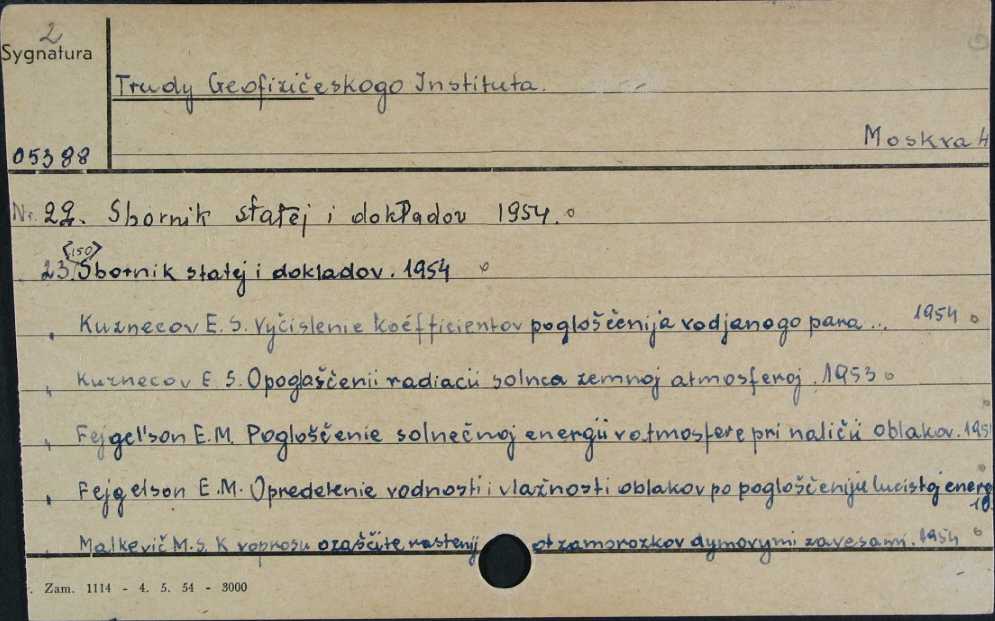 2
Sygnatura
Trudy Geofizičeskogo Instituta.
Moskva
05388
Nr. 22. Sbornik statej i dokładov 1954.
(150)
23. Sbornik statej i dokladov. 1954
" Kuznecov E. S. Vyčislenie koéfficientov pogloščenija vodjanogo para ... 1954
" Kuznecov E. S. O poglaščenii radiacii solnca zemnoj atmosferoj. 1953
" Fejgel'son E.M. Pogloščenie solnečnoj energii v atmosfere pri naličii oblakov. 195
" Fejgelson E.M. Opredelenie vodnosti i vlažnosti oblakov po pogloščeniju lucistoj energ
" Malkevič M.S. K voprosu o zaščite rastenij ot zamorozkov dymovymi zavesami. 1954
Zam. 1114 - 4. 5. 54 - 3000